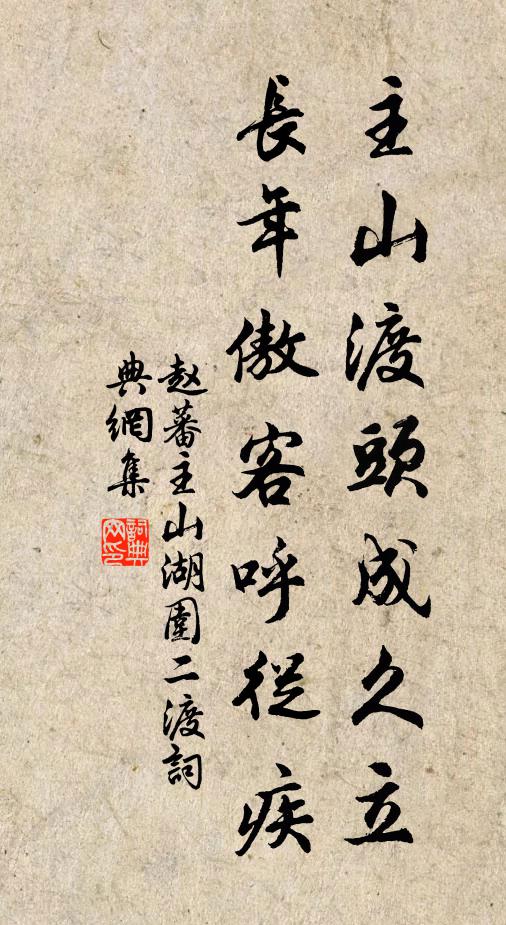 主山渡頭成久立
長年傲客呼從疾
赵蕃主山湖園二渡詞
典網集
詞典
网印